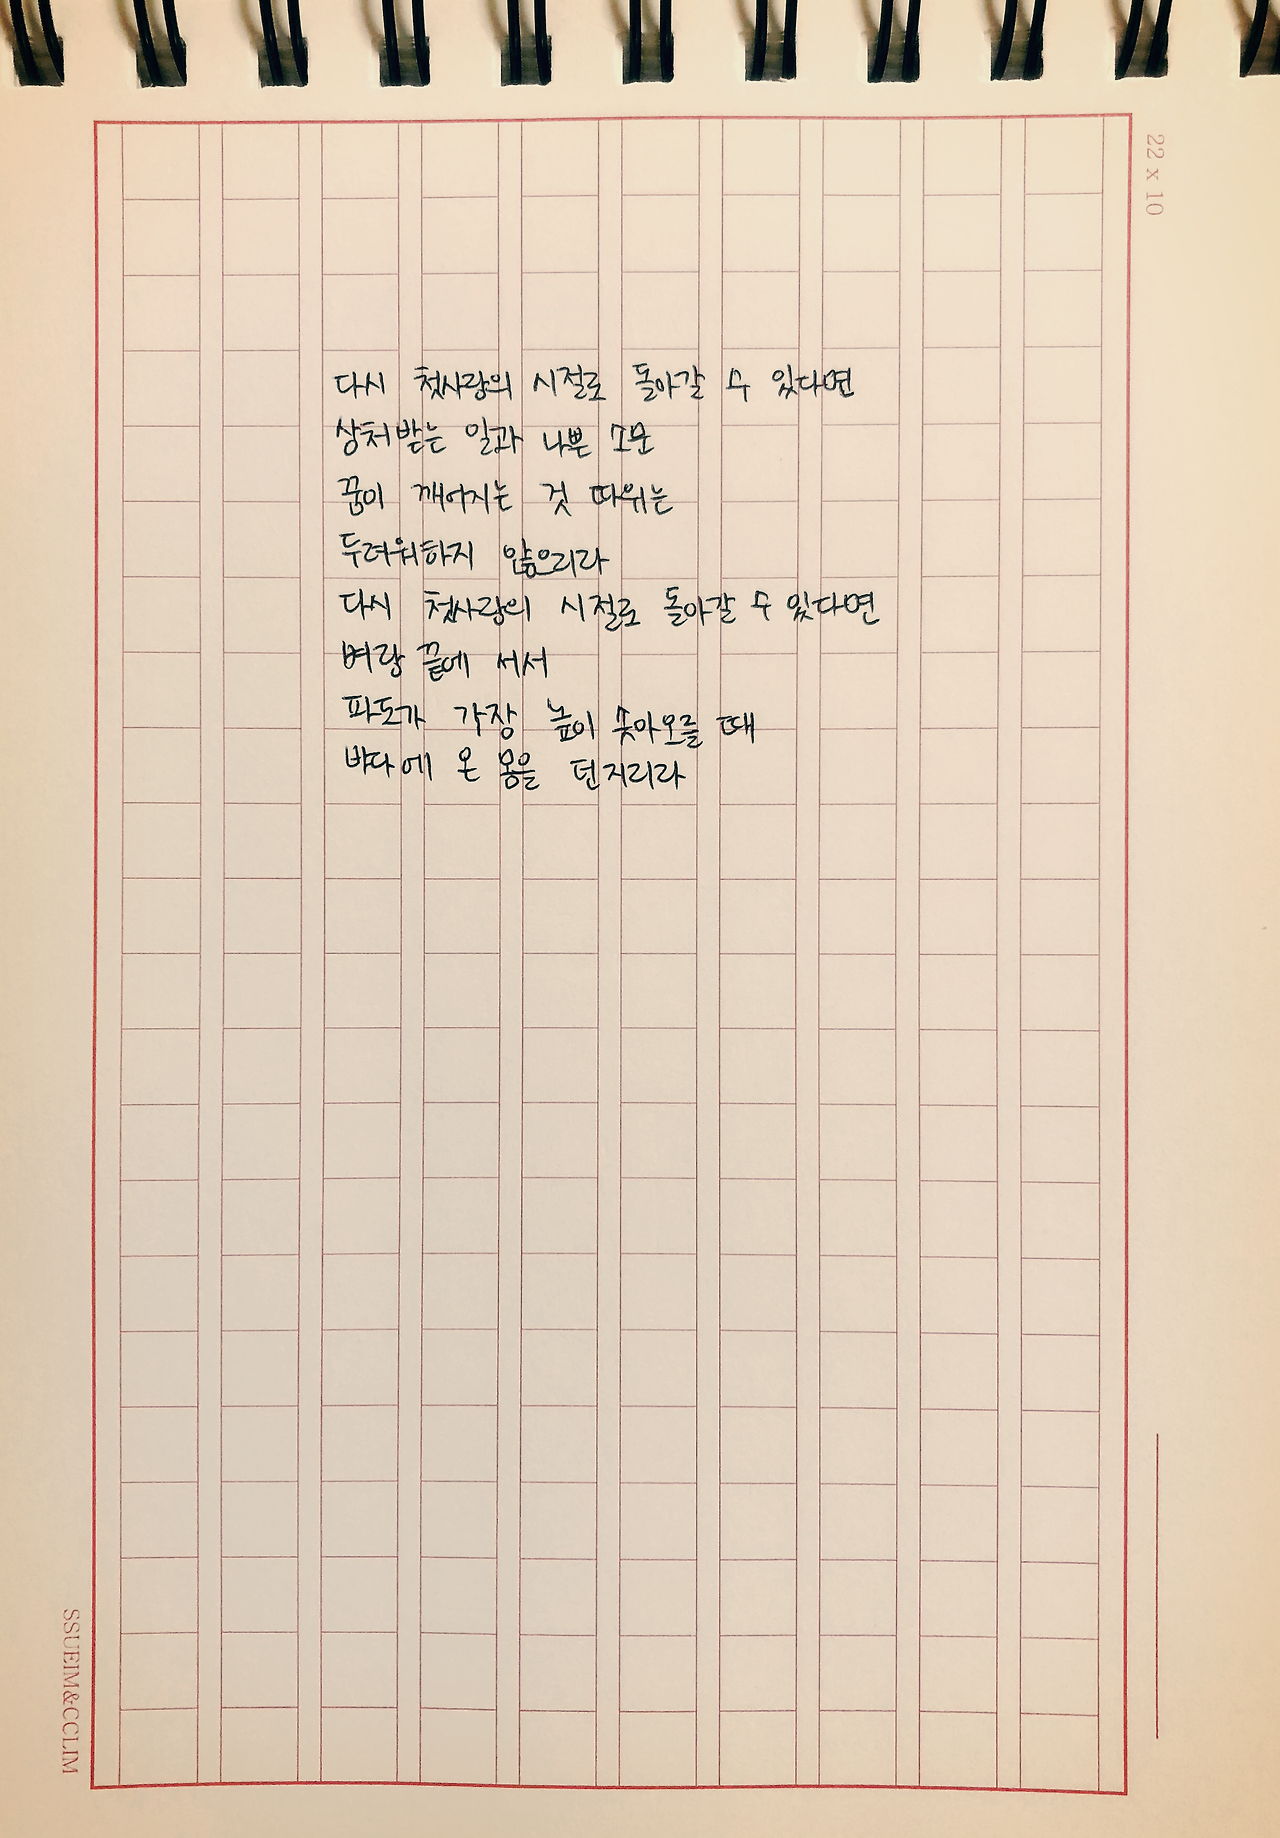 22 x 10
다시 첫사랑의 시절로 돌아갈 수 있다면
상처받는 일과 나쁜 소문
꿈이 깨어지는 것 따위는
두려워하지 않으리라
다시 첫사랑의 시절로 돌아갈 수 있다면
벼랑 끝에 서서
파도가 가장 높이 솟아오를 때
바다에 온 몸을 던지리라
SSUEIM&CCLIM